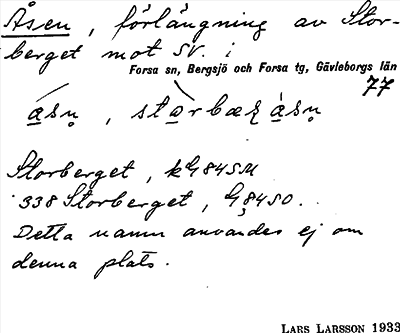 Åsen, förlängning av Stor-
berget mot SV. i
Forsa sn, Bergsjö och Forsa tg, Gävleborgs län
77
Storberget, k
338 Storberget,
Detta namn användes ej om
denna plats.
LARS LARSSON 1933